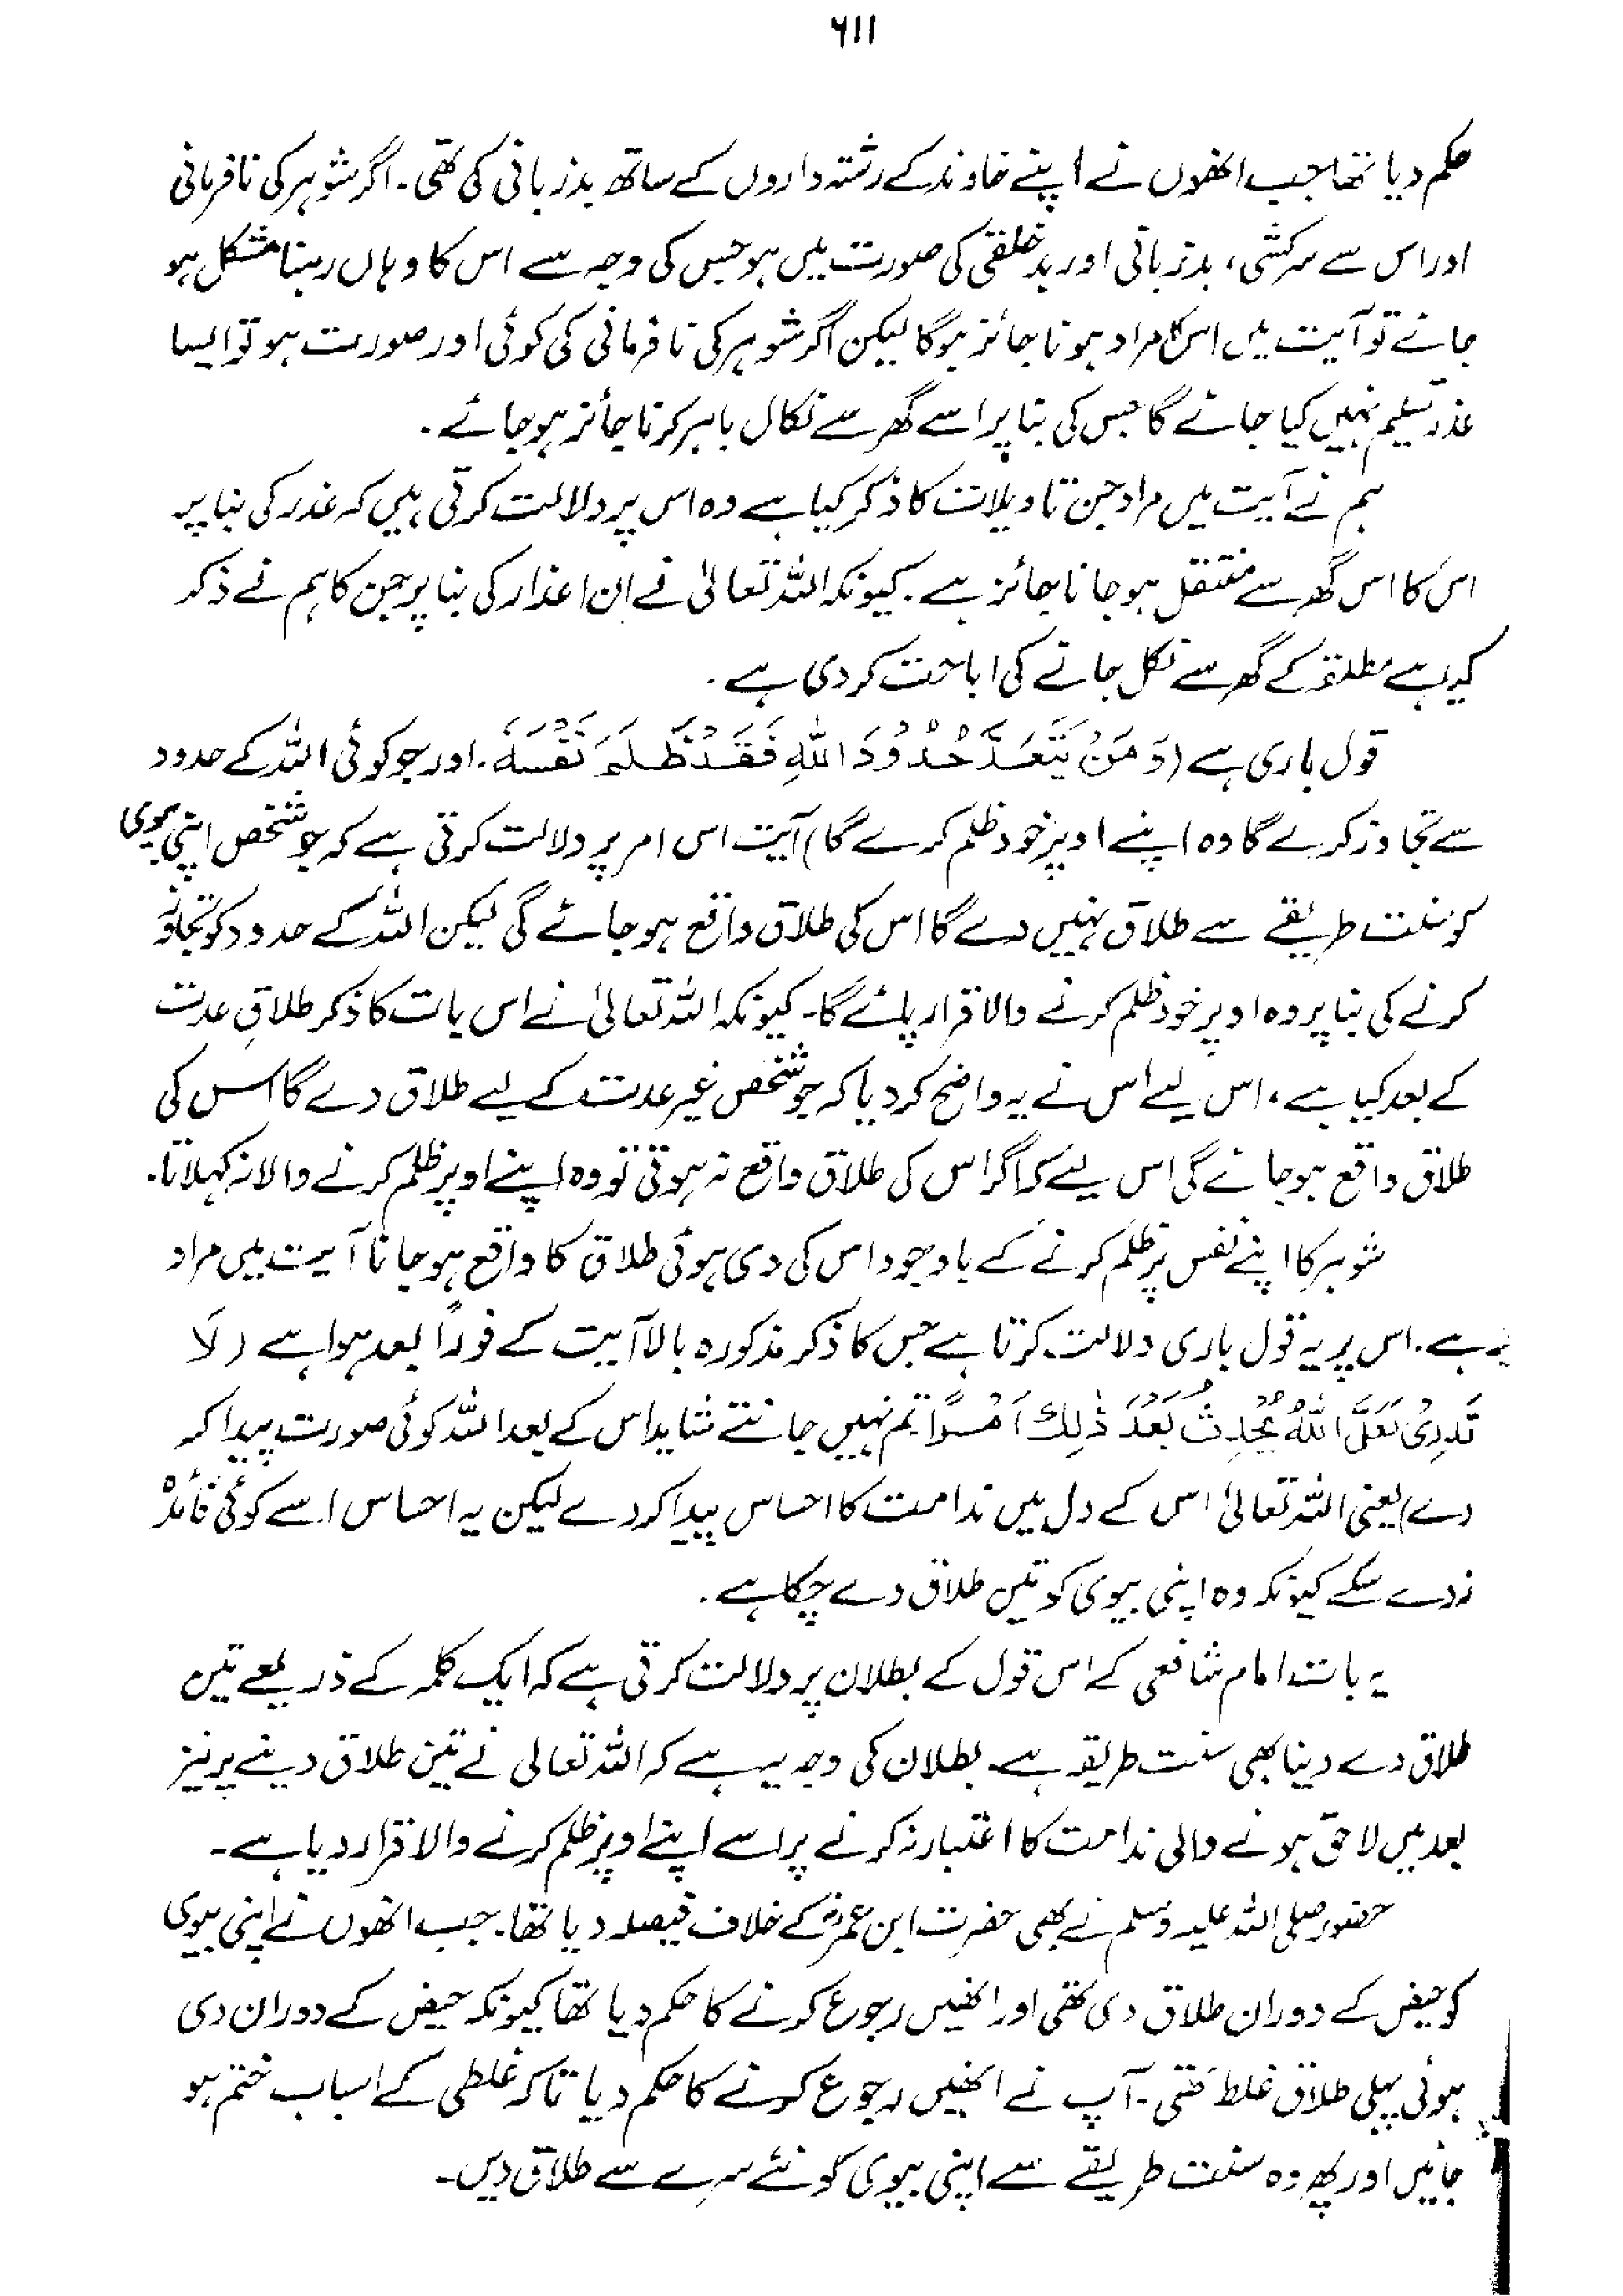 ۶۱۱
حکم دیا تھا جب انھوں نے اپنے خاوند کے رشتہ داروں کے ساتھ بدزبانی کی تھی۔ اگر شوہر کی نافرمانی
اور اس سے سرکشی، بدزبانی اور بدخلقی کی صورت میں ہو جس کی وجہ سے اس کا وہاں رہنا مشکل ہو
جائے تو آیت میں اس کا مراد ہونا جائز ہوگا لیکن اگر شوہر کی نافرمانی کی کوئی اور صورت ہو تو ایسا
عذر تسلیم نہیں کیا جائے گا جس کی بنا پر اسے گھر سے نکال باہر کرنا جائز ہو جائے۔
ہم نے آیت میں مراد جن تاویلات کا ذکر کیا ہے وہ اس پر دلالت کرتی ہیں کہ عذر کی بنا پر
اس کا اس گھر سے منتقل ہو جانا جائز ہے۔ کیونکہ اللہ تعالیٰ نے ان اعذار کی بنا پر جن کا ہم نے ذکر
کیا ہے مطلقہ کے گھر سے نکل جانے کی اباحت کر دی ہے۔
قول باری ہے (وَمَنْ يَّتَعَدَّ حُدُوْدَ اللهِ فَقَدْ ظَلَمَ نَفْسَهٗ۔ اور جو کوئی اللہ کے حدود
سے تجاوز کرے گا وہ اپنے اوپر خود ظلم کرے گا) آیت اس امر پر دلالت کرتی ہے کہ جو شخص اپنی بیوی
کو سنت طریقے سے طلاق نہیں دے گا اس کی طلاق واقع ہو جائے گی لیکن اللہ کے حدود کو تجاوز
کرنے کی بنا پر وہ اوپر خود ظلم کرنے والا قرار پائے گا۔ کیونکہ اللہ تعالیٰ نے اس بات کا ذکر طلاقِ عدت
کے بعد کیا ہے، اس لیے اس نے یہ واضح کر دیا کہ جو شخص غیر عدت کے لیے طلاق دے گا اس کی
طلاق واقع ہو جائے گی اس لیے کہ اگر اس کی طلاق واقع نہ ہوتی تو وہ اپنے اوپر ظلم کرنے والا نہ کہلاتا۔
شوہر کا اپنے نفس پر ظلم کرنے کے باوجود اس کی دی ہوئی طلاق کا واقع ہو جانا آیت میں مراد
ہے۔ اس پر یہ قول باری دلالت کرتا ہے جس کا ذکر مذکورہ بالا آیت کے فوراً بعد ہوا ہے (لَا
تَدْرِىْ لَعَلَّ اللهَ يُحْدِثُ بَعْدَ ذٰلِكَ اَمْرًا تم نہیں جانتے شاید اس کے بعد اللہ کوئی صورت پیدا کر
دے) یعنی اللہ تعالیٰ اس کے دل میں ندامت کا احساس پیدا کر دے لیکن یہ احساس اسے کوئی فائدہ
نہ دے سکے کیونکہ وہ اپنی بیوی کو تین طلاق دے چکا ہے۔
یہ بات امام شافعی کے اس قول کے بطلان پر دلالت کرتی ہے کہ ایک کلمہ کے ذریعے تین
طلاق دے دینا بھی سنت طریقہ ہے۔ بطلان کی وجہ یہ ہے کہ اللہ تعالی نے تین طلاق دینے پر نیز
بعد میں لاحق ہونے والی ندامت کا اعتبار نہ کرنے پر اسے اپنے اوپر ظلم کرنے والا قرار دیا ہے۔
حضور صلی اللہ علیہ وسلم نے بھی حضرت ابن عمرؓ کے خلاف فیصلہ دیا تھا۔ جب انھوں نے اپنی بیوی
کو حیض کے دوران طلاق دی تھی اور انھیں رجوع کرنے کا حکم دیا تھا کیونکہ حیض کے دوران دی
ہوئی پہلی طلاق غلط تھی۔ آپ نے انھیں رجوع کرنے کا حکم دیا تاکہ غلطی کے اسباب ختم ہو
جائیں اور پھر وہ سنت طریقے سے اپنی بیوی کو نئے سرے سے طلاق دیں۔